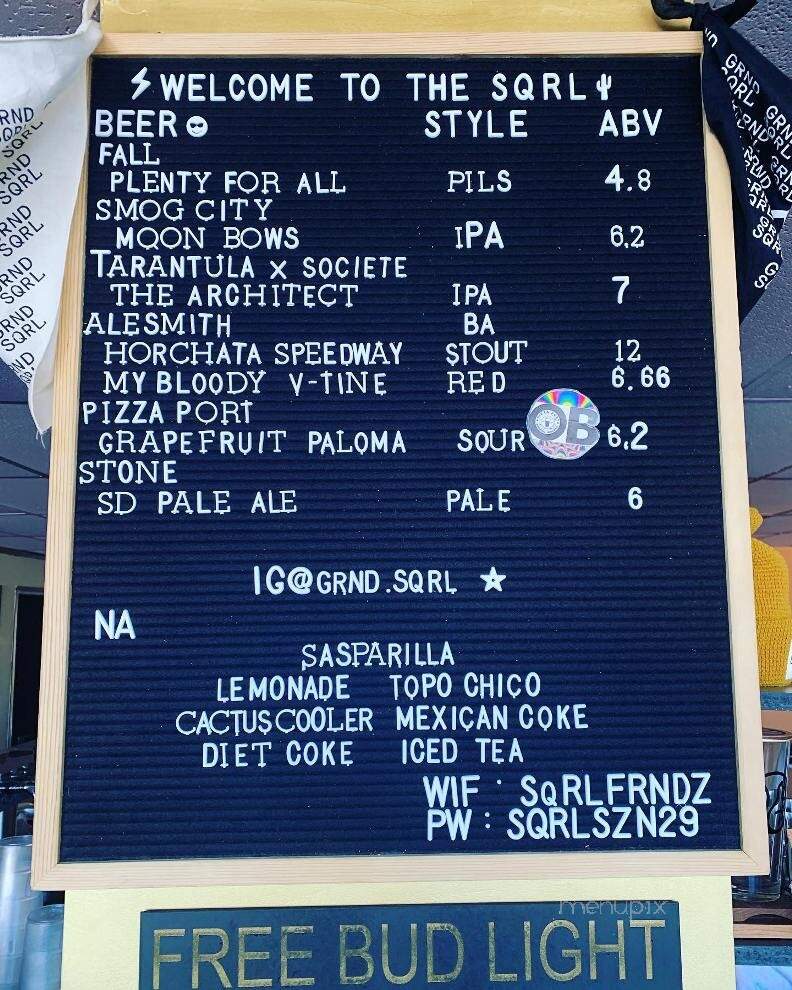 WELCOME TO THE SQRL
BEER STYLE ABV
FALL
PLENTY FOR ALL PILS 4.8
SMOG CITY
MOON BOWS IPA 6.2
TARANTULA X SOCIETE
THE ARCHITECT IPA 7
ALESMITH BA
HORCHATA SPEEDWAY STOUT 12
MY BLOODY V-TINE RED 6.66
PIZZA PORT
GRAPEFRUIT PALOMA SOUR OB 6.2
STONE
SD PALE ALE PALE 6
IG@GRND.SQRL
NA
SASPARILLA
LEMONADE TOPO CHICO
CACTUS COOLER MEXICAN COKE
DIET COKE ICED TEA
WIF : SQRLFRNDZ
PW : SQRLSZN29
menupix
FREE BUD LIGHT
GRND
SQRL
GRND
SQRL
GRND
SQRL